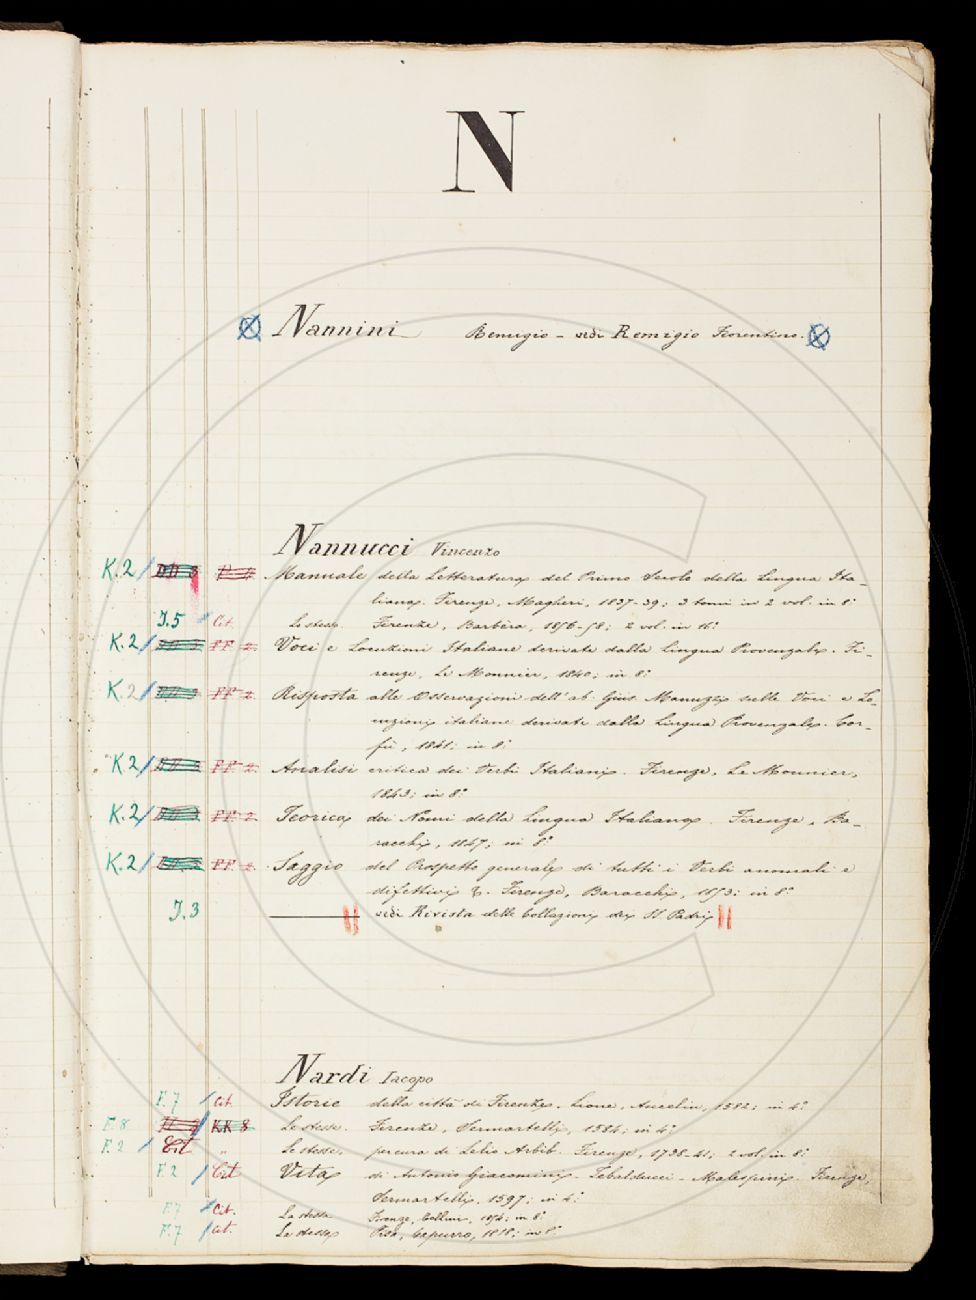 N
Nannini Remigio - vedi Remigio Fiorentino.
Nannucci Vincenzo
K.2 / Manuale della Letteratura del Primo Secolo della Lingua Ita-
liana. Firenze, Magheri, 1837-39; 3 tomi in 2 vol. in 8°
I.5 / Cit. Lo stesso. Firenze, Barbèra, 1856-58; 2 vol. in 16°
K.2 / FF 2. Voci e Locuzioni Italiane derivate dalla Lingua Provenzale. Fi-
renze, Le Monnier, 1840; in 8°
K.2 / FF 2. Risposta alle Osservazioni dell'ab. Gius. Manuzzi sulle Voci e Lo-
cuzioni italiane derivate dalla Lingua Provenzale. Cor-
fù, 1841; in 8°
K.2 / FF 2. Analisi critica dei Verbi Italiani. Firenze, Le Monnier,
1843; in 8°
K.2 / FF 2. Teorica dei Nomi della Lingua Italiana. Firenze, Ba-
racchi, 1847; in 8°
K.2 / FF 2. Saggio del Prospetto generale di tutti i Verbi anomali e
difettivi &. Firenze, Baracchi, 1853; in 8°
I.3 vedi Rivista delle Collezioni dei SS. Padri
Nardi Iacopo
F.7 / Cit. Istorie della città di Firenze. Lione, Ancelin, 1582; in 4°
F.8 / KK 8 Le stesse. Firenze, Sermartelli, 1584; in 4°
F.2 / Cit " Le stesse, per cura de Lelio Arbib. Firenze, 1738-41; 2 vol. in 8°
F.2 / Cit Vita di Antonio Giacomini Tebalducci - Malespini. Firenze,
Sermartelli, 1597; in 4°
F.7 / Cit. La stessa Firenze, Bellini, in 8°
F.7 / Cit. La stessa Pisa, Capurro, 1818; in 8°